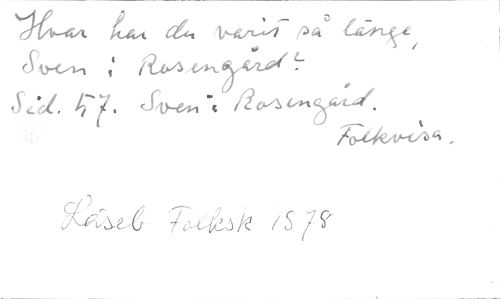 Hvar har du varit så länge,
Sven i Rosengård?
Sid. 57. Sven i Rosengård.
Folkvisa.
Läseb Folksk 1878